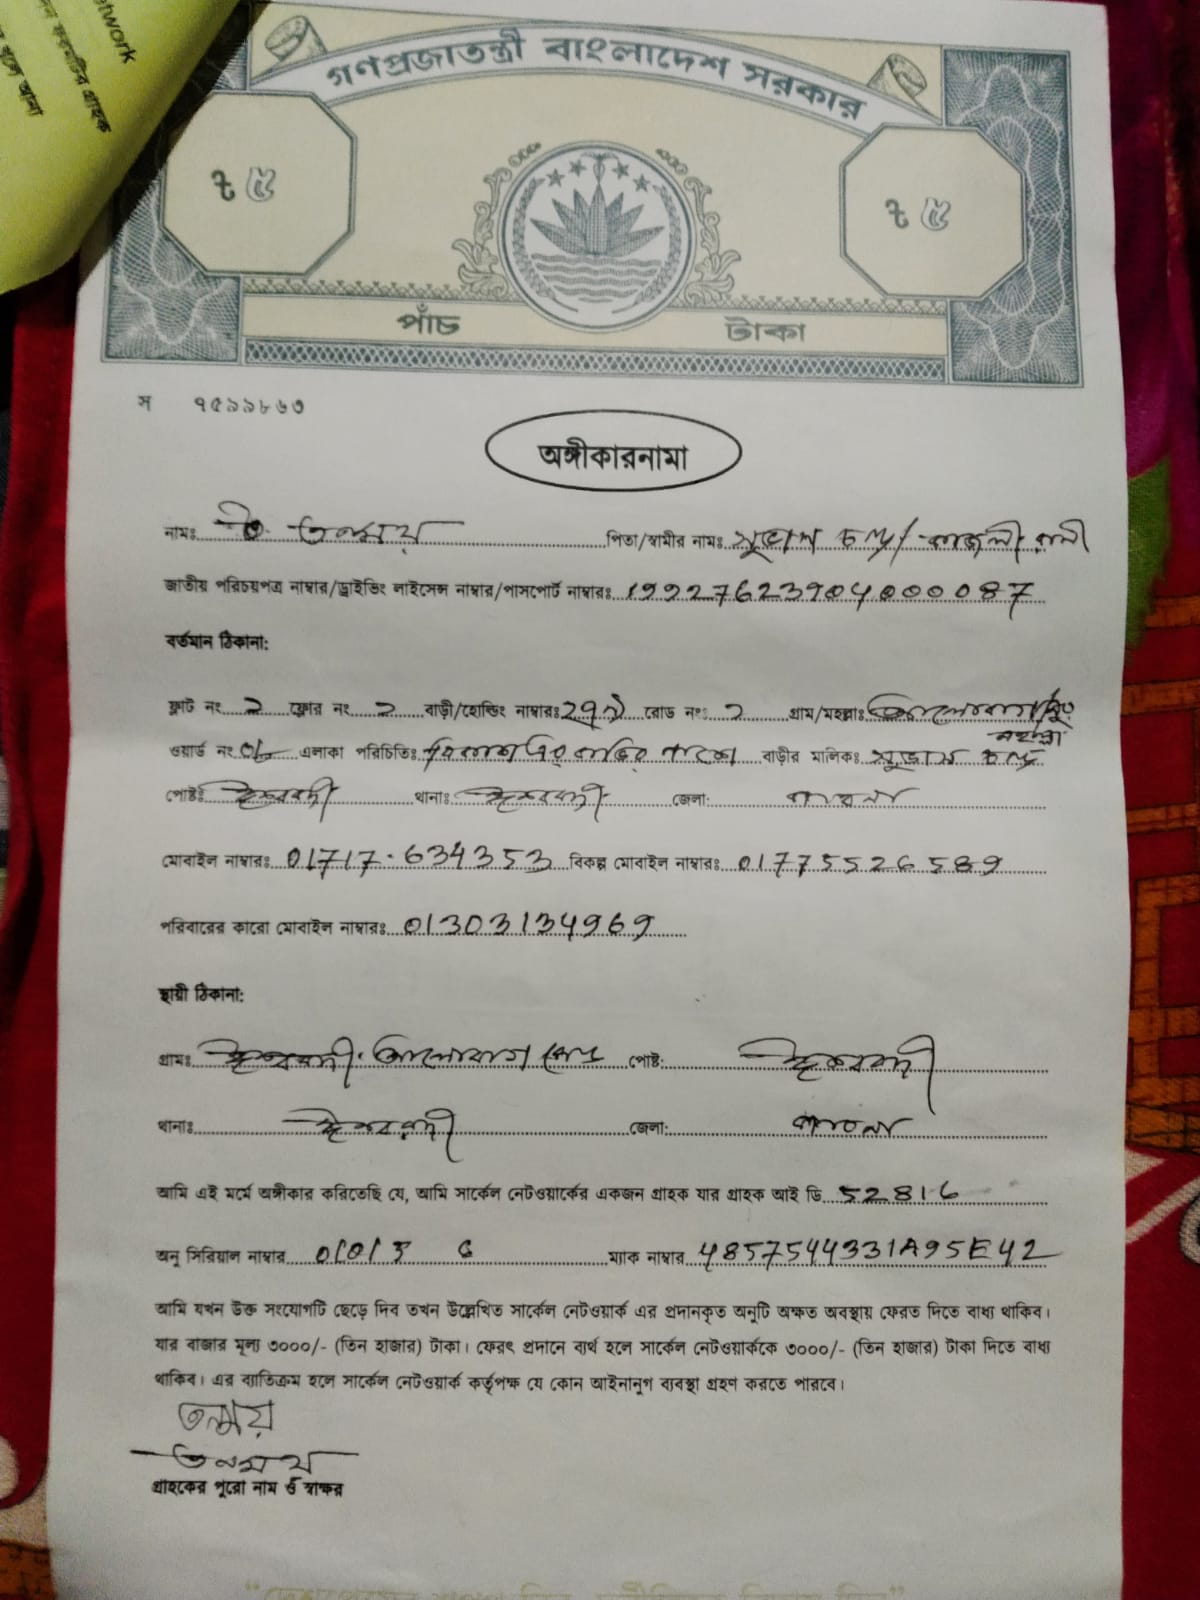 twork
গণপ্রজাতন্ত্রী বাংলাদেশ সরকার
৳ ৫ ৳ ৫
পাঁচ টাকা
স ৭৫৯৯৮৬৩
অঙ্গীকারনামা
নামঃ তন্ময় পিতা/স্বামীর নামঃ সুভাস চন্দ্র/ কাজলী রানী
জাতীয় পরিচয়পত্র নাম্বার/ড্রাইভিং লাইসেন্স নাম্বার/পাসপোর্ট নাম্বারঃ 19927623904000087
বর্তমান ঠিকানা:
ফ্লাট নং ২ ফ্লোর নং ২ বাড়ী/হোল্ডিং নাম্বারঃ রোড নংঃ ২ গ্রাম/মহল্লাঃ
ওয়ার্ড নং এলাকা পরিচিতিঃ বাড়ির পাশে বাড়ীর মালিকঃ সুভাস চন্দ্র
পোষ্টঃ ঈশ্বরদী থানাঃ ঈশ্বরদী জেলা: পাবনা
মোবাইল নাম্বারঃ 01717-634353 বিকল্প মোবাইল নাম্বারঃ 01775526589
পরিবারের কারো মোবাইল নাম্বারঃ 01303134969
স্থায়ী ঠিকানা:
গ্রামঃ পোষ্ট: ঈশ্বরদী
থানাঃ ঈশ্বরদী জেলা: পাবনা
আমি এই মর্মে অঙ্গীকার করিতেছি যে, আমি সার্কেল নেটওয়ার্কের একজন গ্রাহক যার গ্রাহক আই ডি 52816
অনু সিরিয়াল নাম্বার ম্যাক নাম্বার 4857544331A95E42
আমি যখন উক্ত সংযোগটি ছেড়ে দিব তখন উল্লেখিত সার্কেল নেটওয়ার্ক এর প্রদানকৃত অনুটি অক্ষত অবস্থায় ফেরত দিতে বাধ্য থাকিব।
যার বাজার মূল্য ৩০০০/- (তিন হাজার) টাকা। ফেরৎ প্রদানে ব্যর্থ হলে সার্কেল নেটওয়ার্ককে ৩০০০/- (তিন হাজার) টাকা দিতে বাধ্য
থাকিব। এর ব্যাতিক্রম হলে সার্কেল নেটওয়ার্ক কর্তৃপক্ষ যে কোন আইনানুগ ব্যবস্থা গ্রহণ করতে পারবে।
তন্ময়
তনময়
গ্রাহকের পুরো নাম ও স্বাক্ষর